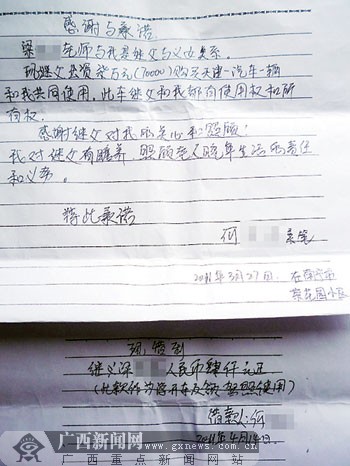 感谢与承诺
梁 老师与我是继父与义女关系.
现继父出资柒万元(70000)购买天津一汽车一辆
和我共同使用.此车继父和我都有使用权和所
有权.
感谢继父对我的关心和照顾!
我对继父有赡养、照顾老人晚年生活的责任
和义务。
特此承诺
何 亲笔
2011年3月27日.在南宁市
花园小区
现借到
继父梁 人民币肆仟元正
(此款作为学开车及领驾照使用)
借款人:何
2011年4月14日
广西新闻网
www.gxnews.com.cn
广西重点新闻网站